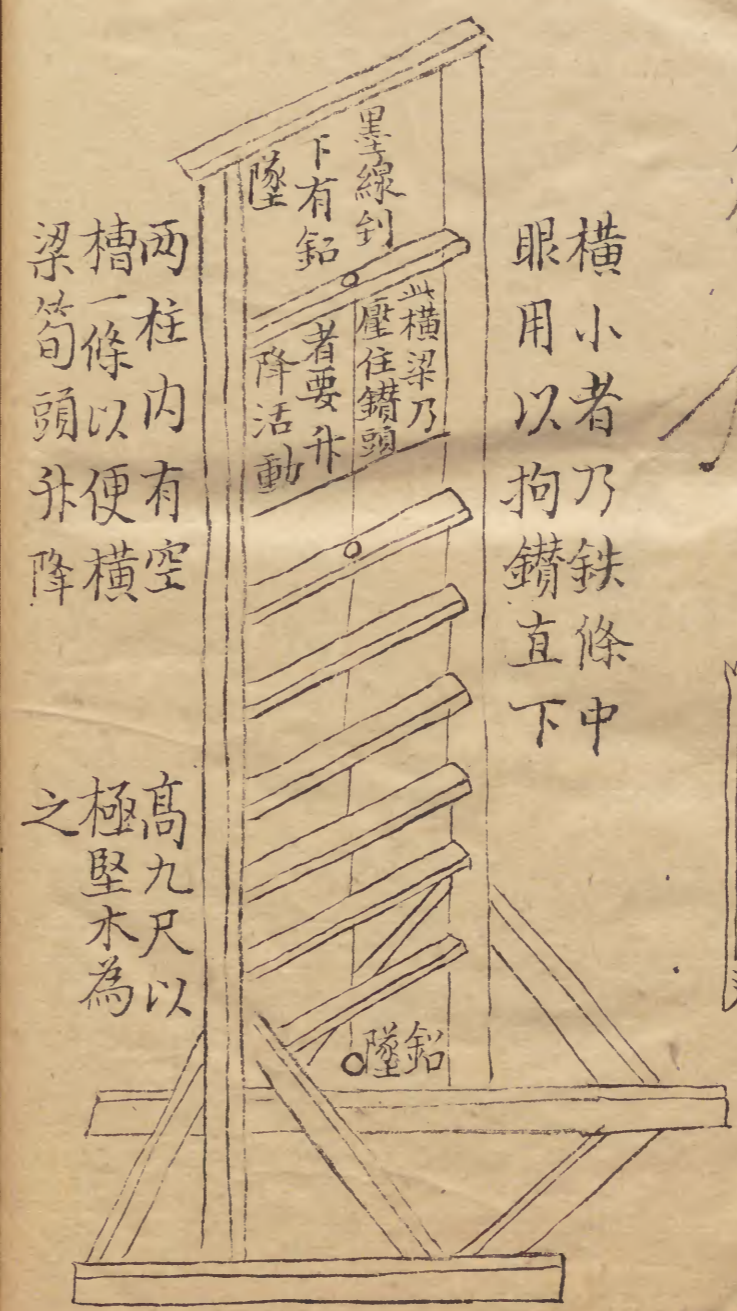 橫小者乃鉄條中
眼用以拘鑽直下
墨線到
下有鉛
墜
此橫梁乃
壓住鑽頭
者要升
降活動
两柱内有空
槽一條以便橫
梁筍頭升降
髙九尺以
極堅木為
之
鉛
墜